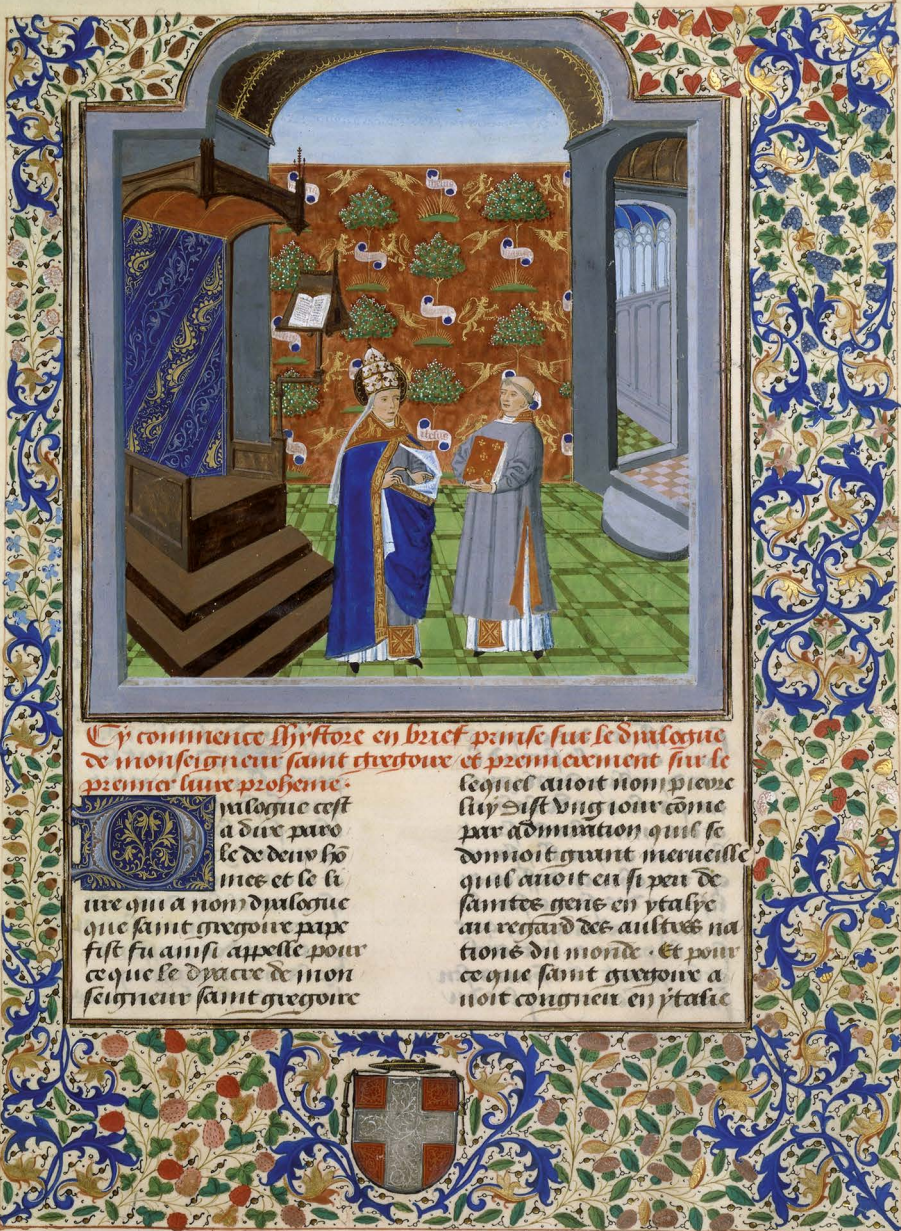 Cy commence lhystore en brief prinse sur le dyalogue
de monseigneur saint Gregoire et premierement sur le
premier livre proheme.
Dyalogue cest
a dire paro
le de deux hõ
mes et le li
ure qui a nom dyalogue
que saint gregoire pape
fist fu ainsi appelle pour
ce que le dyacre de mon
seigneur saint gregoire
lequel auoit nom pierre
luy dist vng iour cõme
par admiration quil se
donnoit grant merueille
quil auoit en si peu de
saintes gens en ytalye
au regard des aultres na
tions du monde. Et pour
ce que saint gregoire a
uoit congneu en ytalie